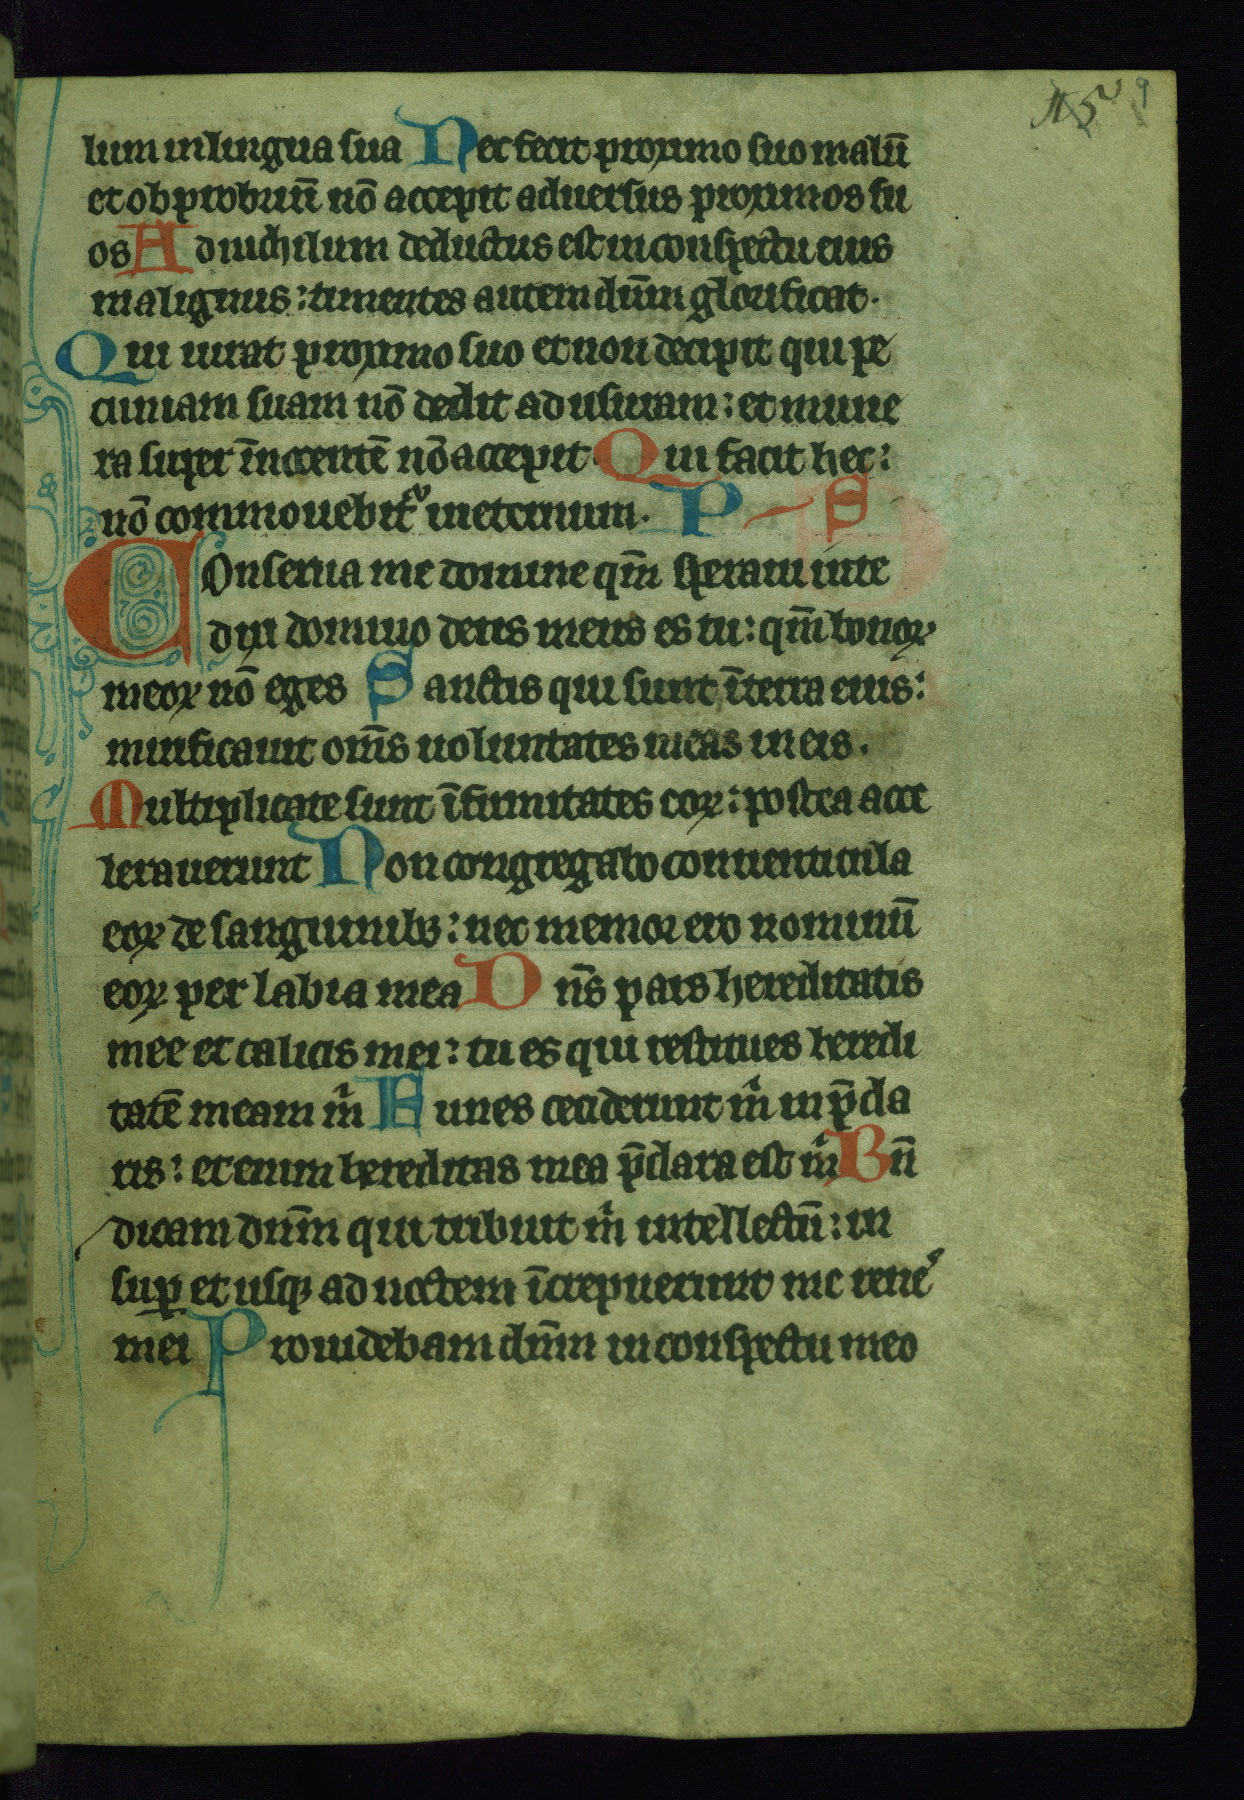 lum in lingua sua Nec fecit proximo suo malū
et obprobriū nō accepit aduersus proximos su
os Ad nichilum deductus est in conspectu eius
malignus: timentes autem dn̄m glorificat.
Qui iurat proximo suo et non decipit qui pe
cuniam suam nō dedit ad usuram: et mune
ra super īnocentē nō accepit. Qui facit hec:
nō commouebitᷣ in eternum. P S
Conserua me domine qm̄ speraui in te
dixi domino deus meus es tu: qm̄ bonoꝝ
meoꝝ nō eges Sanctis qui sunt ī terra eius:
mirificauit om̄s uoluntates meas in eis.
Multiplicate sunt īfirmitates eoꝝ: postea acce
lerauerunt Non congregabo conuenticula
eoꝝ de sanguinibꝫ: nec memor ero nominū
eoꝝ per labia mea Dn̄s pars hereditatis
mee et calicis mei: tu es qui restitues heredi
tatē meam m̍ Funes ceciderunt m̍ in p̄cla
ris: et enim hereditas mea p̄clara est m̍ Bn̄
dicam dn̄m qui tribuit m̍ intellectū: in
suꝑ et usqꝫ ad noctem īcrepuerunt me rene
mei Prouidebam dn̄m in conspectu meo
9